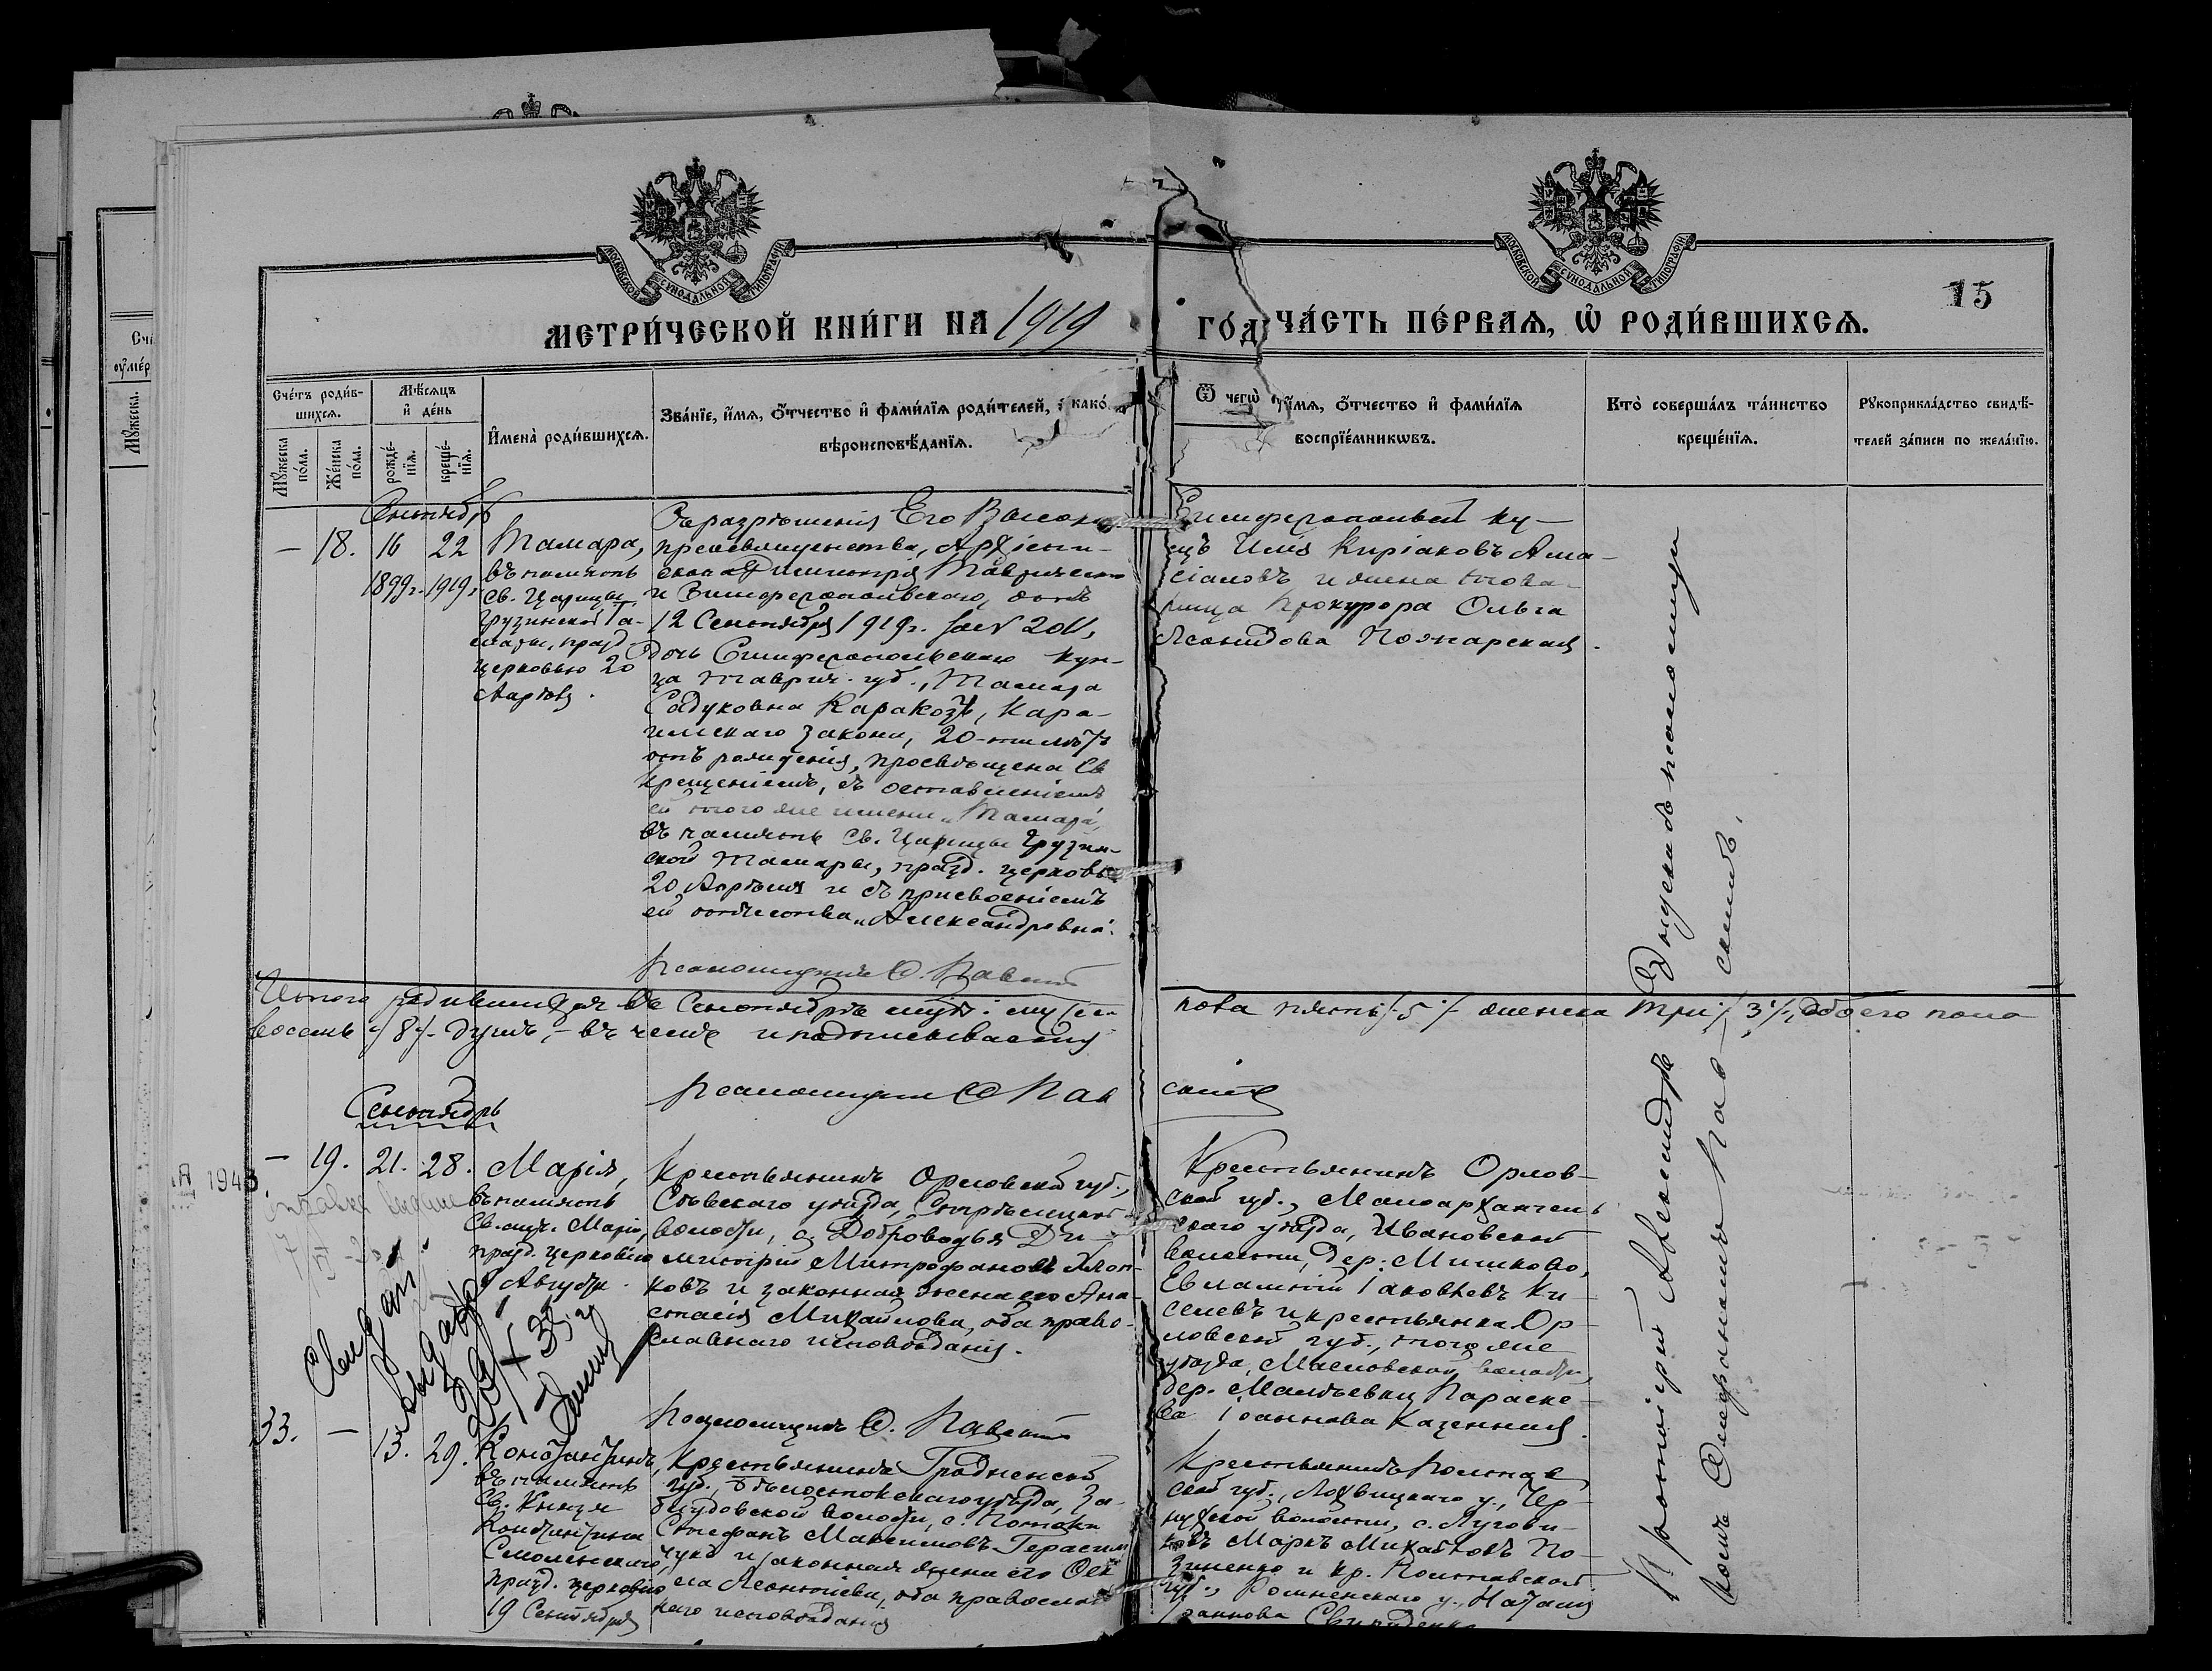 МОСКОВСКОЙ СѴНОДАЛЬНОЙ ТИПОГРАФІИ
МОСКОВСКОЙ СѴНОДАЛЬНОЙ ТИПОГРАФІИ
15
МЕТРИ́ЧЕСКОЙ КНИ́ГИ НА 1919 ГО́ДЪ ЧА́СТЬ ПЕ́РВАЯ, Ѡ РОДИ́ВШИХСЯ.
Сче́тъ роди́в-
шихся.
Мѣ́сяцъ
и де́нь
Му́жеска по́ла.
Же́нска по́ла.
рожде́-нія.
креще́-нія.
Имена̀ роди́вшихся.
Зва́ніе, и́мя, о́тчество и фами́лія роди́телей, и како́
вѣроисповѣ́данія.
Ѿ чегѡ
и́мя, о́тчество и фами́лія
воспріе́мникѡвъ.
Кто̀ соверша́лъ та́инство
креще́нія.
Рукоприкла́дство свидѣ́-
телей за́писи по жела́нію.
Сентябрь
— 18. 16 22
1899 г. 1919 г.
Тамара,
въ память
Св. Царицы
Грузинской Та-
мары, празд.
церковью 20
Апрѣля.
Съ разрѣшенія Его Высоко-
преосвященства, Архіепи-
скопа Димитрія Таврическаго
и Симферопольскаго, отъ
12 Сентября 1919 г.
дочь Симферопольскаго куп-
ца Таврич. губ., Тамара
Садуковна Каракозъ, Кара-
имскаго закона, 20-ти лѣтъ
отъ рожденія, просвѣщена Св.
Крещеніемъ, съ оставленіемъ
ей того же имени „Тамара",
въ память Св. Царицы Грузин-
ской Тамары, празд. церковью
20 Апрѣля и съ присвоеніемъ
ей отчества „Александровна".
Псаломщикъ Ѳ. Павскій
Симферопольскій ку-
ецъ Илія Киріаковъ Ама-
сіановъ и жена това-
рища прокурора Ольга
Леонидова Пожарская.
Итого родившихся въ Сентябрѣ муж.
пола пять /-5-/ женска три /-3-/, обоего пола
восемь /-8-/ душъ, — въ чемъ и подписываемся
Псаломщикъ Ѳ Пав
скій
Сентябрь
— 19. 21. 28.
Марія,
въ память
Св. муч. Маріи,
празд. церковію
9 Августа.
Крестьянинъ Орловской губ.,
Сѣвскаго уѣзда, Стрѣлецкой
волости, с. Доброводья Ди-
митрій Митрофановъ
ковъ и законная жена его Ана-
стасія Михайлова, оба право-
славнаго исповѣданія.
Псаломщикъ Ѳ. Павскій
Крестьянинъ Орлов-
ской губ., Малоархангель
скаго уѣзда, Ивановской
волости, дер. Мишково,
Евлампій Іаковлевъ Ки-
селевъ и крестьянка Ор-
ловской губ., того же
уѣзда, волости,
дер. Параске-
ва Іоаннова
1948
33. — 13. 29.
Константинъ,
въ память
Св. Князя
Константина
Смоленскаго,
празд. церковію
19 Сентября
Крестьянинъ Гродненской
губ., Бѣлостокскаго уѣзда, За-
блудовской волости, с.
Стефанъ Максимовъ Герасим
чукъ и законная жена его
Леонтіева, оба православ
наго исповѣданія
Крестьянинъ Полтав
ской губ., Лохвицкаго у., Чер-
нухской волости, с.
Маркъ Михайловъ По-
зиненко и кр. Полтавской
губ., Роменскаго у., Наталія
Іоаннова Свириденко
Протоіерей Александръ Эндека съ псаломщи
комъ Ѳеофаномъ Пав-скимъ.